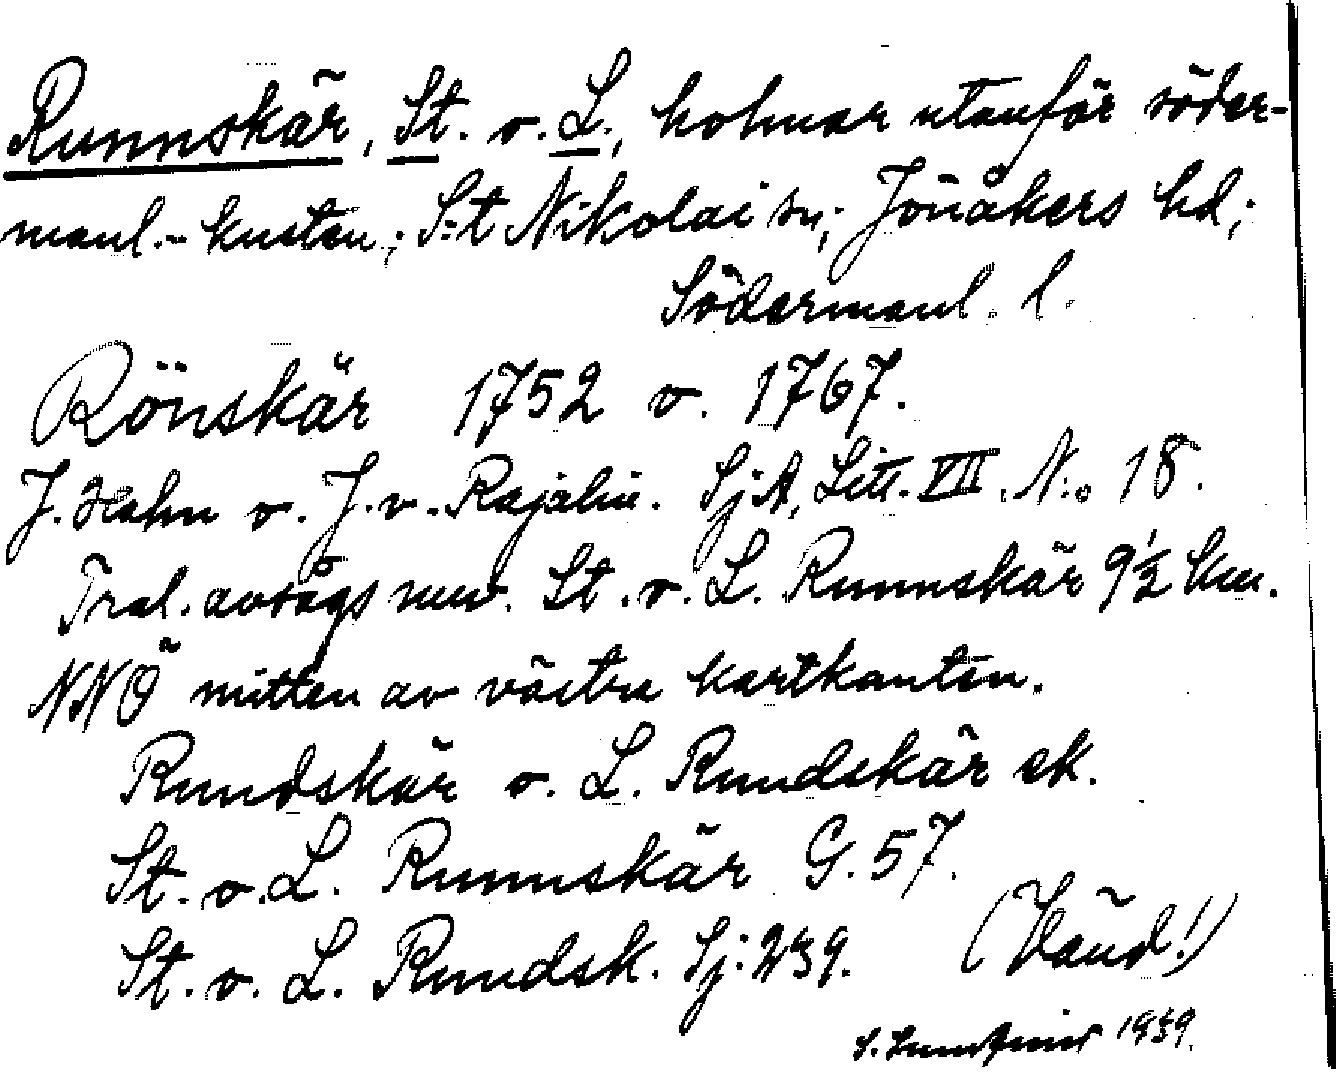 Runnskär, St. o. L., holmar utanför söder-
manl.-kusten; S:t Nikolai sn; Jönåkers hd;
Södermanl. l.
Rönskär 1752 o. 1767.
J. Hahn o. J. v. Rajalin. SjA, Litt. VII. N:o 18.
Trol. avsågs nuv. St. o. L. Runnskär 9½ km.
NNÖ mitten av västra kartkanten.
Rundskär o. L. Rundskär ek.
St. o. L. Runnskär G. 57.
St. o. L. Rundsk. Sj: 239. (Vänd!)
1939.